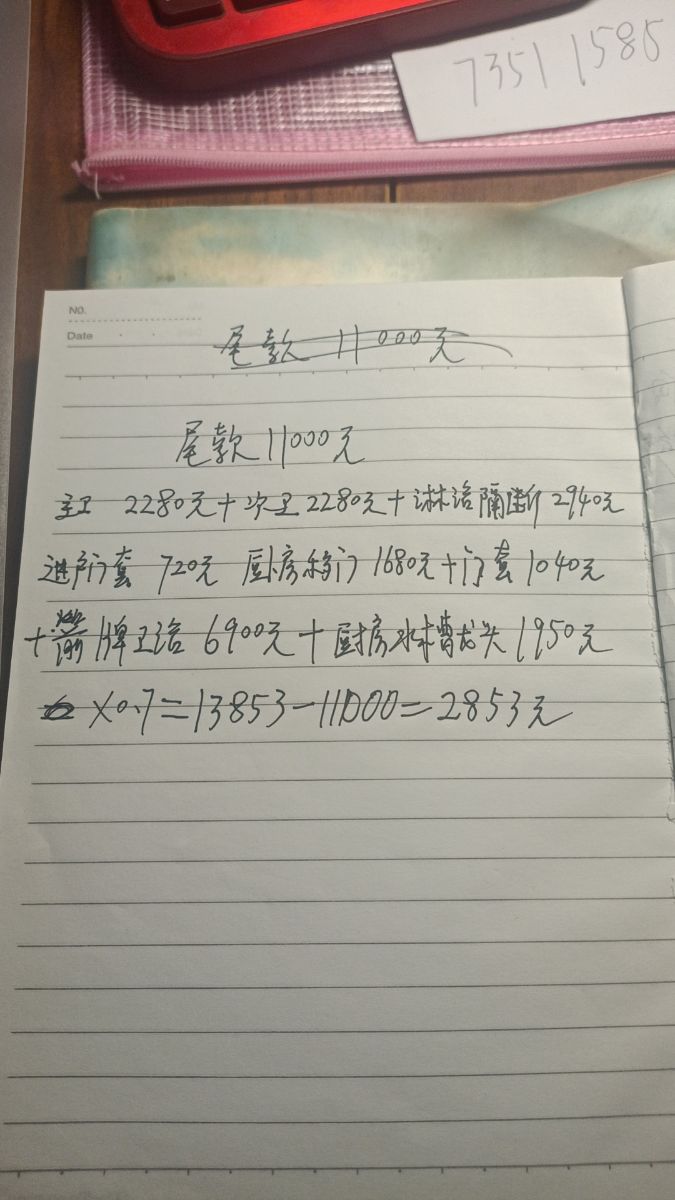 73511585
NO.
Date
尾款 11000元
尾款 11000元
主卫 2280元+次卫2280元+淋浴隔断2940元
进户门套 720元 厨房移门 1680元+门套 1040元
+箭牌卫浴 6900元+厨房水槽龙头 1950元
×0.7=13853-11000=2853元